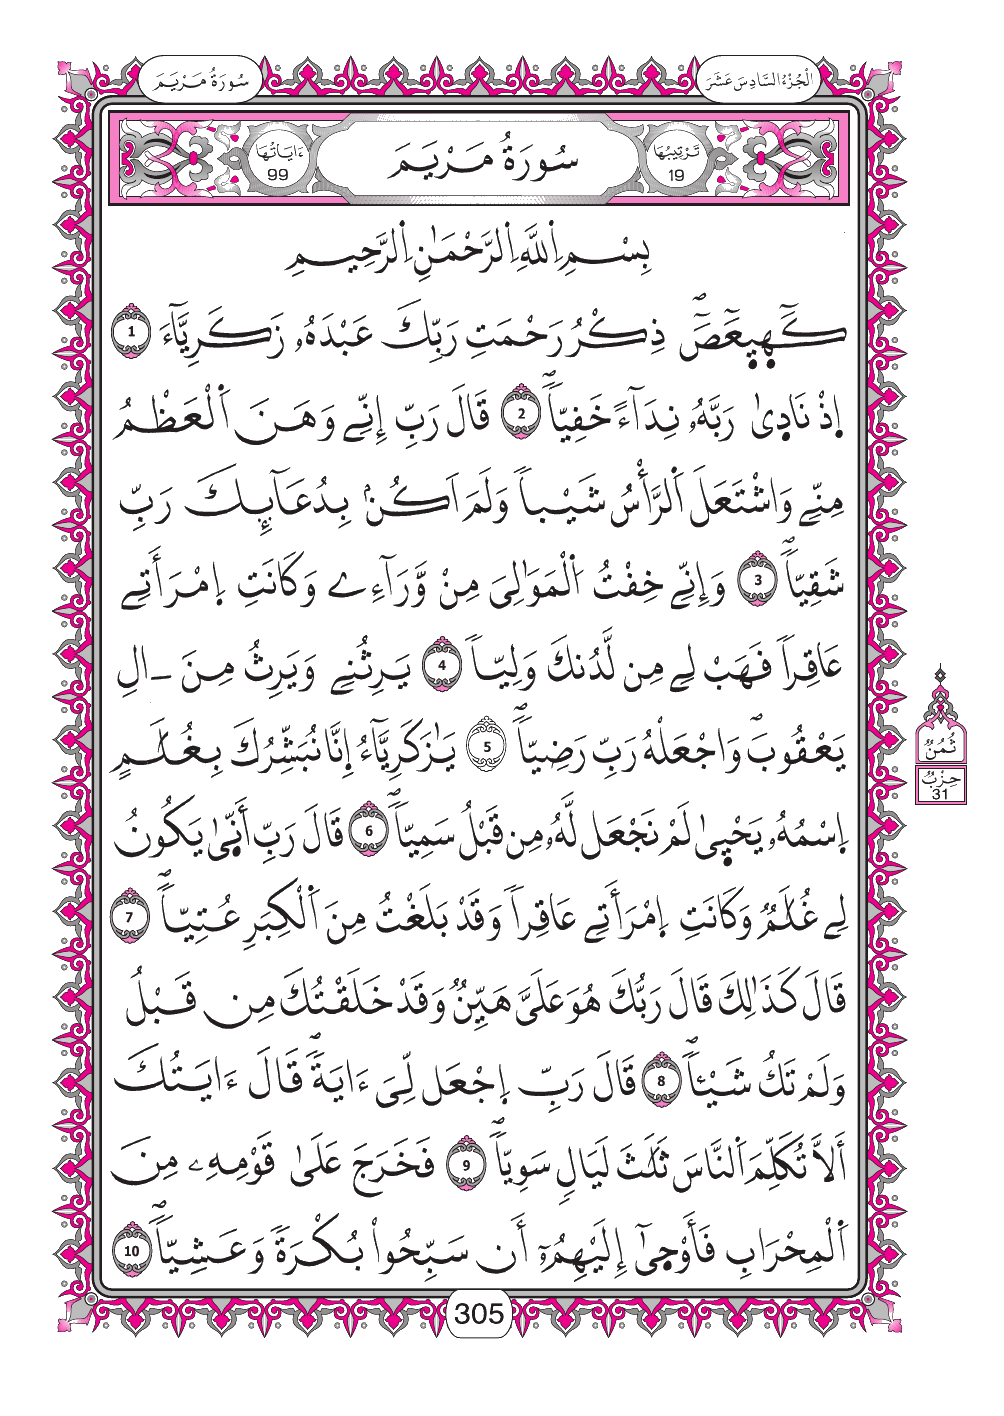 سُورَةُ مَرْيَمَ
اَلْجُزْءُ السَّادِسَ عَشَرَ
تَرْتِيبُهَا 19
سُورَةُ مَرْيَمَ
ءَايَاتُهَا 99
بِسْمِ اِ۬للَّهِ اِ۬لرَّحْمَٰنِ اِ۬لرَّحِيمِ
كَٓهيعَٓصَٓۖ ذِكْرُ رَحْمَتِ رَبِّكَ عَبْدَهُۥ زَكَرِيَّآءَ 1
إِذْ نَادِىٰ رَبَّهُۥ نِدَآءً خَفِيّاٗۖ 2 قَالَ رَبِّ إِنِّے وَهَنَ اَ۬لْعَظْمُ
مِنِّے وَاشْتَعَلَ اَ۬لرَّأْسُ شَيْباٗ وَلَمَ اَكُنۢ بِدُعَآئِكَ رَبِّ
شَقِيّاٗۖ 3 وَإِنِّے خِفْتُ اُ۬لْمَوَٰلِىَ مِنْ وَّرَآءِے وَكَانَتِ اِ۪مْرَأَتِے
عَاقِراٗ فَهَبْ لِے مِن لَّدُنكَ وَلِيّاٗ 4 يَرِثُنِے وَيَرِثُ مِنَ ـ اٰلِ
يَعْقُوبَۖ وَاجْعَلْهُ رَبِّ رَضِيّاٗۖ 5 يَٰزَكَرِيَّآءُ إِنَّا نُبَشِّرُكَ بِغُلَٰمٍ
اِ۪سْمُهُۥ يَحْيٜىٰ لَمْ نَجْعَل لَّهُۥ مِن قَبْلُ سَمِيّاٗۖ 6 قَالَ رَبِّ أَنّٜىٰ يَكُونُ
لِے غُلَٰمٌ وَكَانَتِ اِ۪مْرَأَتِے عَاقِراٗ وَقَدْ بَلَغْتُ مِنَ اَ۬لْكِبَرِ عُتِيّاٗۖ 7
قَالَ كَذَٰلِكَ قَالَ رَبُّكَ هُوَ عَلَىَّ هَيِّنٌ وَقَدْ خَلَقْتُكَ مِن قَبْلُ
وَلَمْ تَكُ شَيْـٔاٗۖ 8 قَالَ رَبِّ اِ۪جْعَل لِّىَ ءَايَةٗۖ قَالَ ءَايَتُكَ
أَلَّا تُكَلِّمَ اَ۬لنَّاسَ ثَلَٰثَ لَيَالٖ سَوِيّاٗۖ 9 فَخَرَجَ عَلَىٰ قَوْمِهِۦ مِنَ
اَ۬لْمِحْرَابِ فَأَوْحٜىٰٓ إِلَيْهِمُۥٓ أَن سَبِّحُواْ بُكْرَةٗ وَعَشِيّاٗۖ 10
ثُمُنٌ
حِزْبٌ
31
305